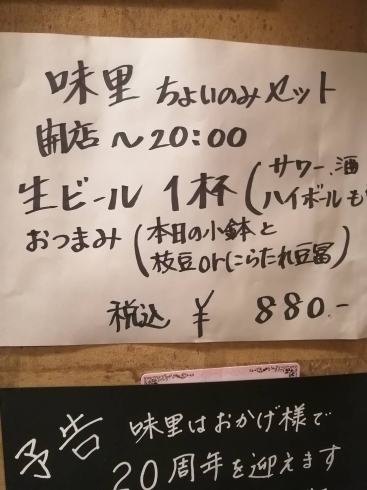 味里 ちょいのみセット
開店〜20:00
生ビール 1杯(サワー、酒
ハイボールも
おつまみ(本日の小鉢と
枝豆orにらたれ豆冨)
税込 ¥ 880.-
予告 味里はおかげ様で
20周年を迎えます